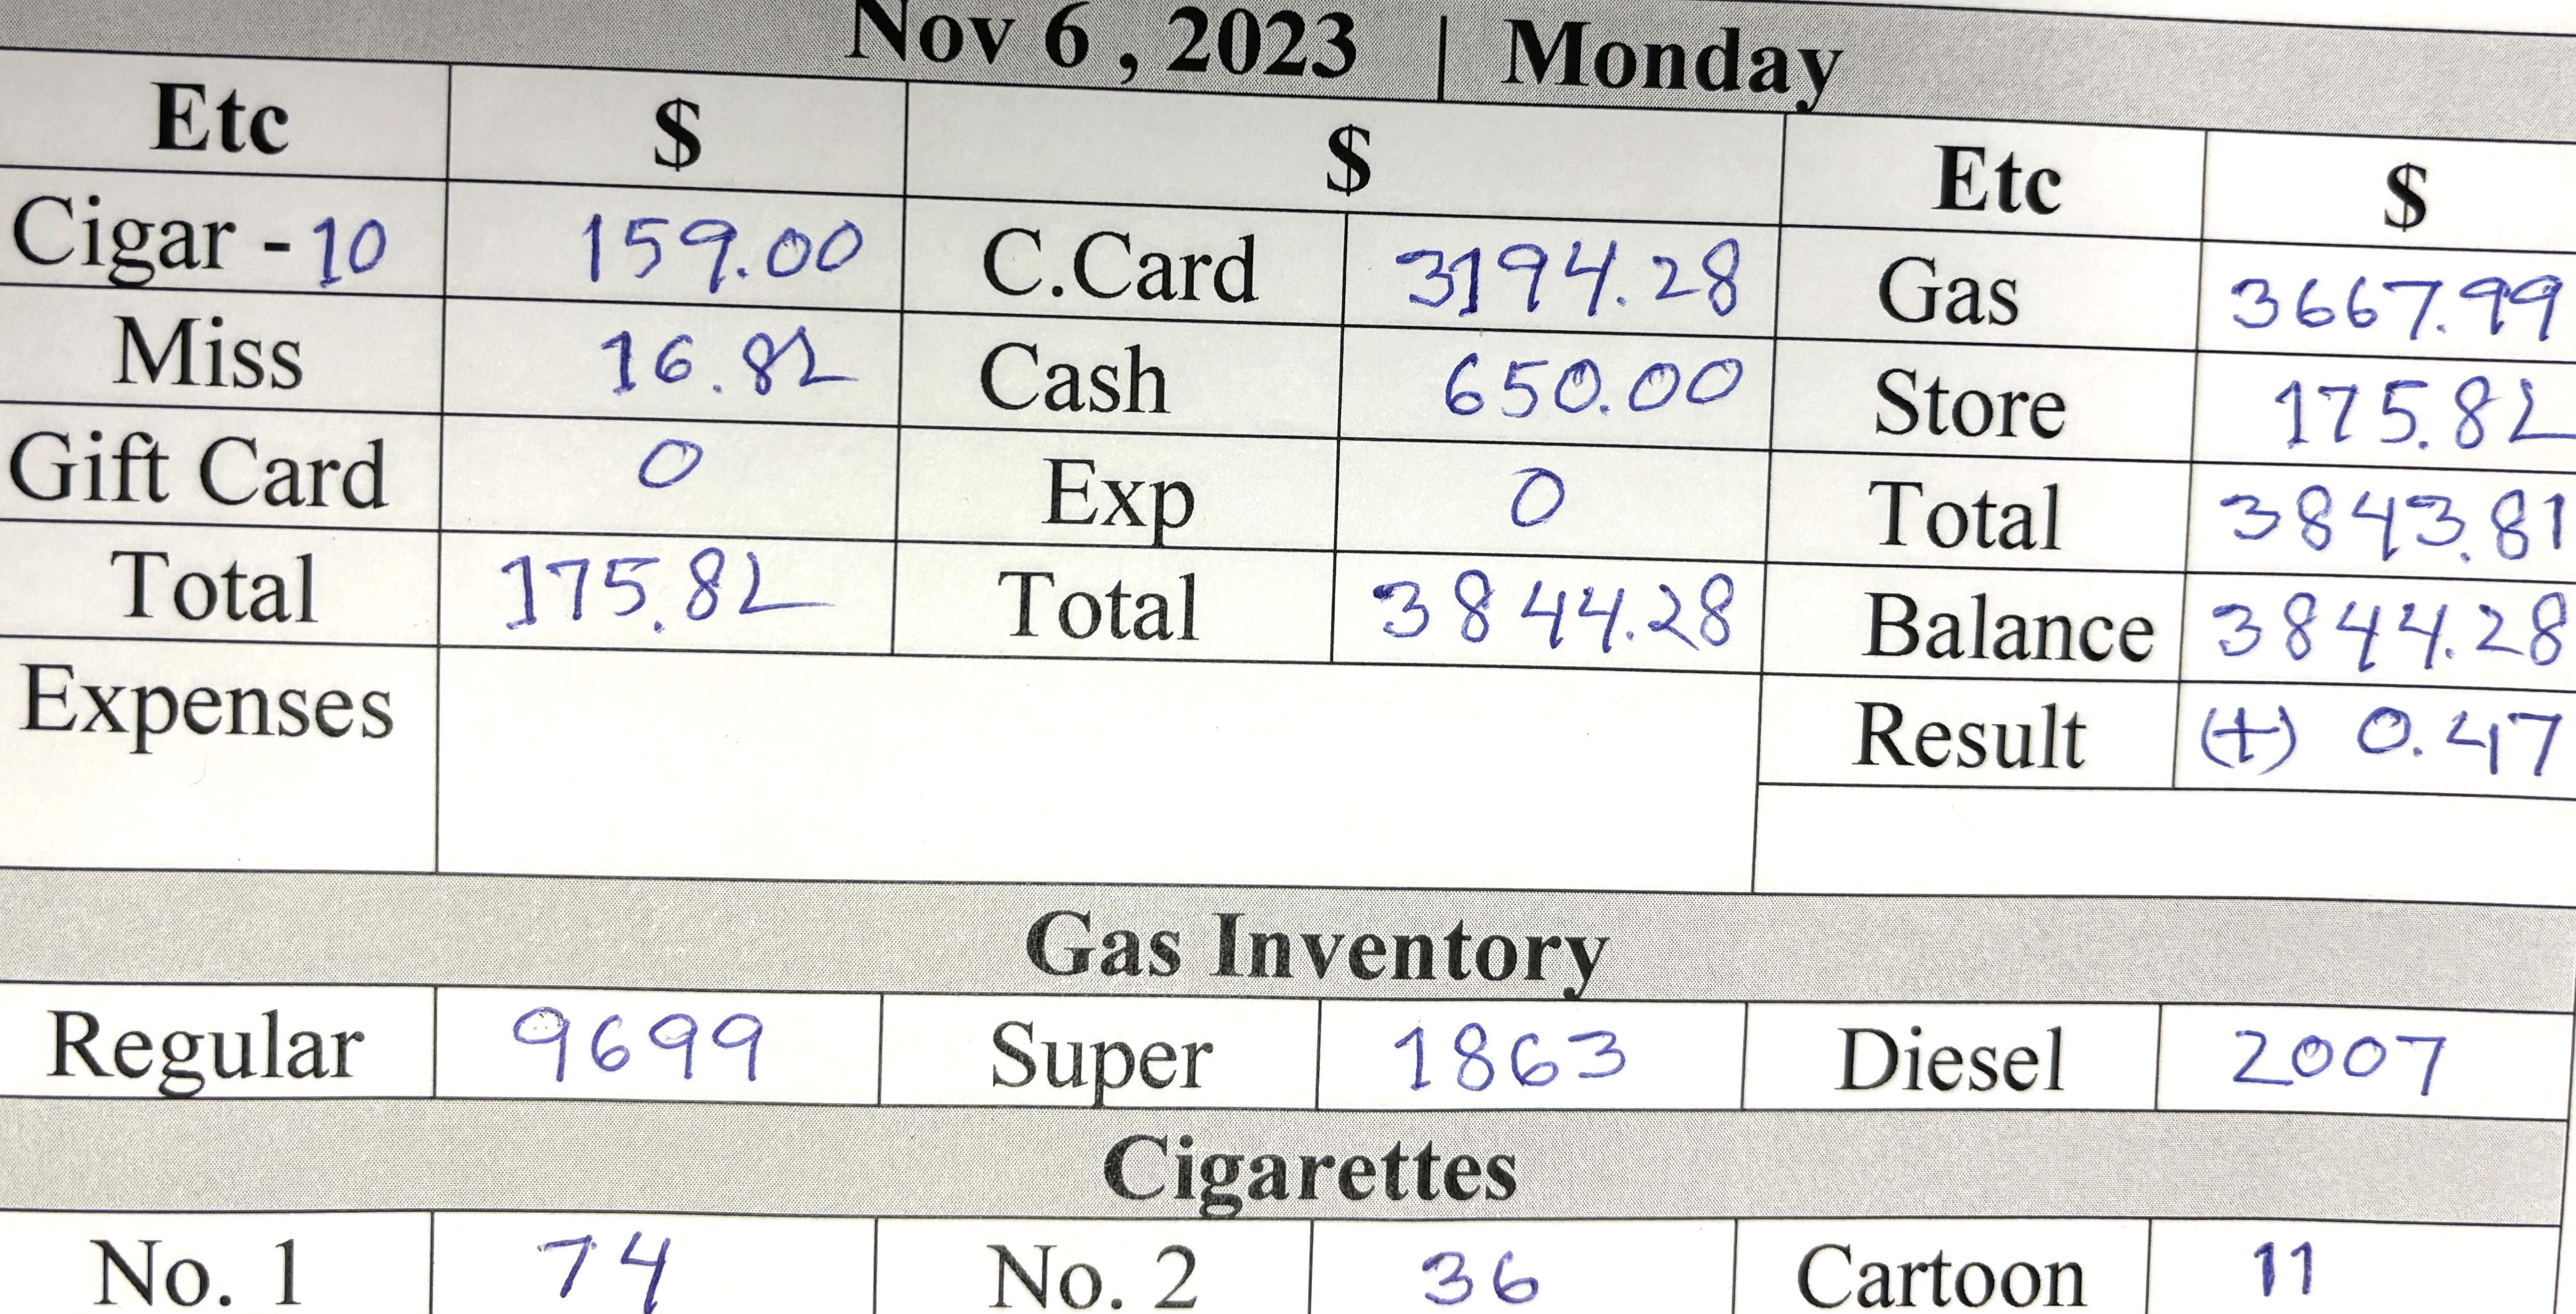 Nov 6 , 2023 | Monday
Etc $ $ Etc $
Cigar - 10 159.00 C.Card 3194.28 Gas 3667.99
Miss 16.82 Cash 650.00 Store 175.82
Gift Card 0 Exp 0 Total 3843.81
Total 175.82 Total 3844.28 Balance 3844.28
Expenses Result (+) 0.47
Gas Inventory
Regular 9699 Super 1863 Diesel 2007
Cigarettes
No. 1 74 No. 2 36 Cartoon 11